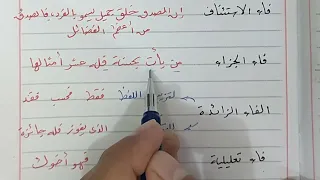 فاء الاستئناف إن الصدق خلق جميل يسمو بالفرد، فالصدق
من أعظم الفضائل
فاء الجزاء من يأت بحسنة فله عشر أمثالها
الفاء الزائدة لتزيين اللفظ فقط فحسب فقد
الذي يفوز فله جائزة
فاء تعليلية فهو أخوك